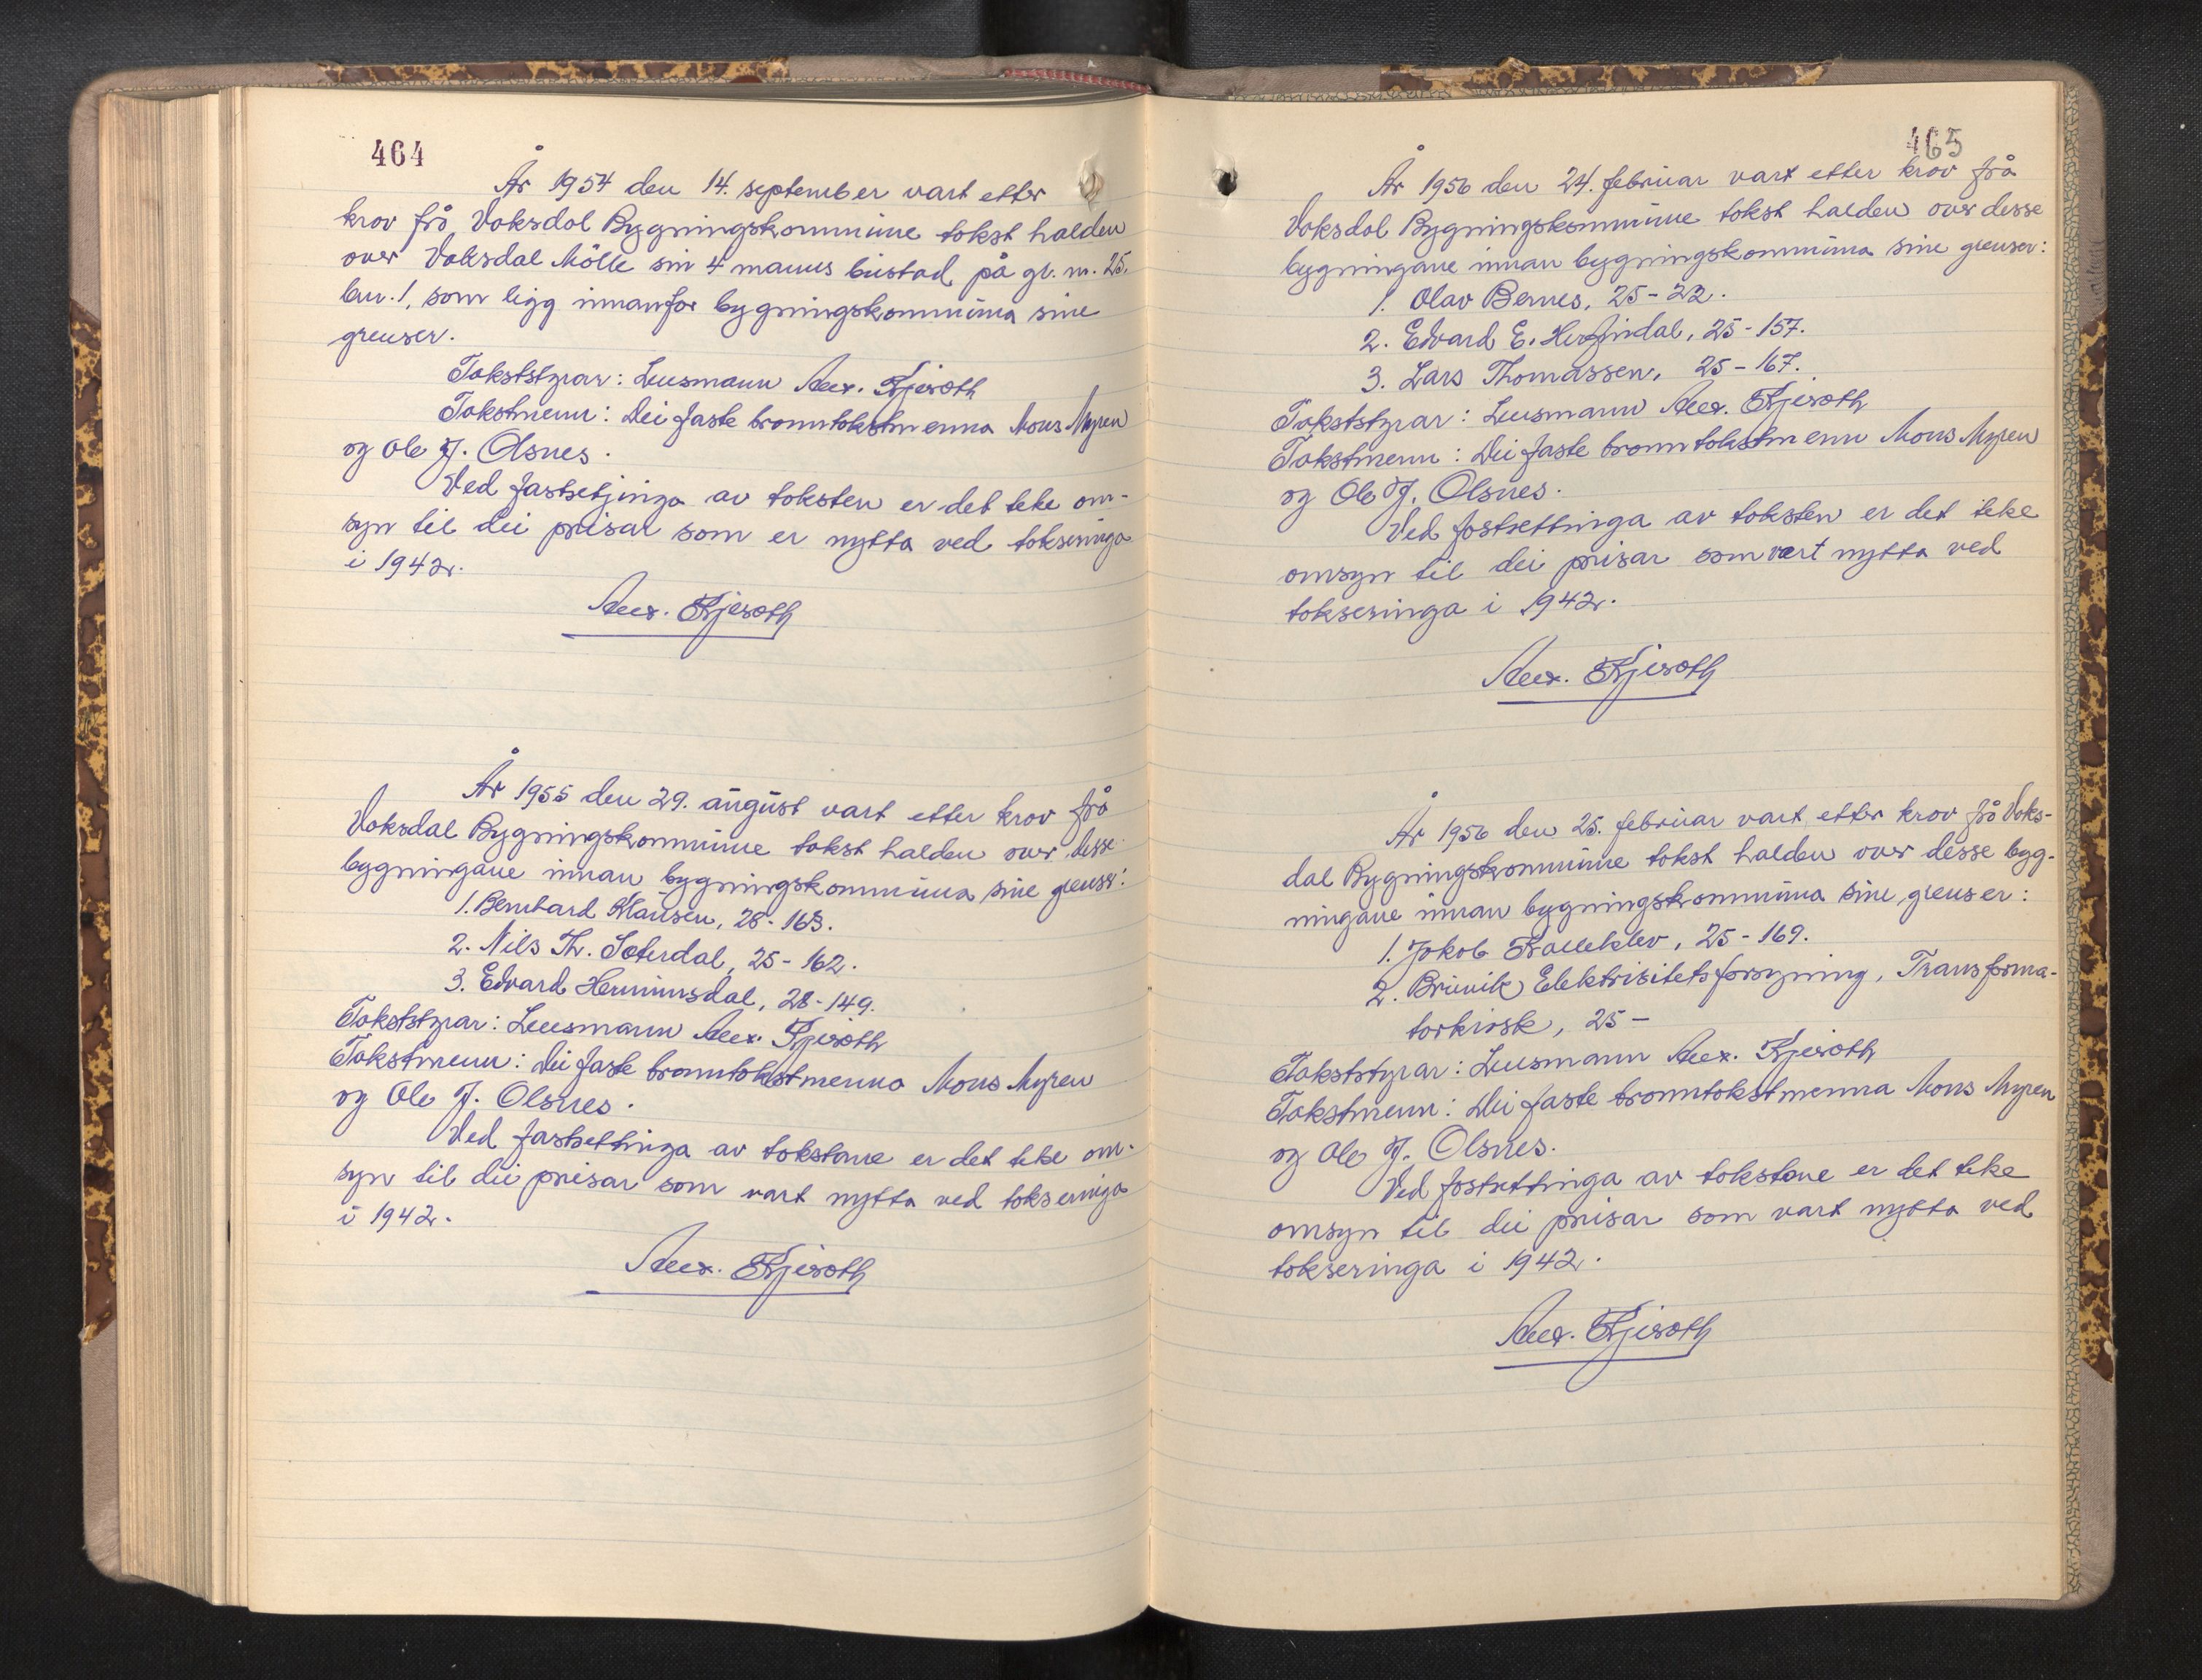 464
År 1954 den 14. september vart etter
krov frå Vaksdal Bygningskommune takst halden
over Vaksdal Mölle sin 4 manns bustad på gr. nr. 25.
bnr. 1, som ligg innanfor bygningskommuna sine
grenser.
Takststyrar: Lensmann Alex. Kjeroth
Takstmenn: Dei faste branntakstmenna Mons Myren
og Ole J. Olsnes.
Ved fastsetjinga av taksten er det teke om-
syn til dei prisar som er nytta ved takseringa
i 1942.
Alex. Kjeroth
År 1955 den 29. august vart etter krov frå
Vaksdal Bygningskommune takst halden over desse
bygningane innan bygningskommuna sine grenser:
1. Bernhard Klausen, 28-163.
2. Nils Th. Sæterdal, 25-162.
3. Edvard Hemmingsdal, 28-149.
Takststyrar: Lensmann Alex. Kjeroth
Takstmenn: Dei faste branntakstmenna Mons Myren
og Ole J. Olsnes.
Ved fastsettinga av takstane er det teke om-
syn til dei prisar som vart nytta ved takseringa
i 1942.
Alex. Kjeroth
465
År 1956 den 24. februar vart etter krov frå
Vaksdal Bygningskommune takst halden over desse
bygningane innan bygningskommuna sine grenser:
1. Olav Bernes, 25-22.
2. Edvard E. Herfindal, 25-157.
3. Lars Thomassen, 25-167.
Takststyrar: Lensmann Alex. Kjeroth
Takstmenn: Dei faste branntakstmenn Mons Myren
og Ole J. Olsnes.
Ved fastsettinga av taksten er det teke
omsyn til dei prisar som vart nytta ved
takseringa i 1942.
Alex. Kjeroth
År 1956 den 25. februar vart etter krov frå Vaks-
dal Bygningskommune takst halden over desse byg-
ningane innan bygningskommuna sine grenser:
1. Jakob Kalleklev, 25-169.
2. Bruvik Elektrisitetsforsyning, Transforma-
torkiosk, 25-
Takststyrar: Lensmann Alex. Kjeroth
Takstmenn: Dei faste branntakstmenna Mons Myren
og Ole J. Olsnes.
Ved fastsettinga av takstane er det teke
omsyn til dei prisar som vart nytta ved
takseringa i 1942.
Alex. Kjeroth